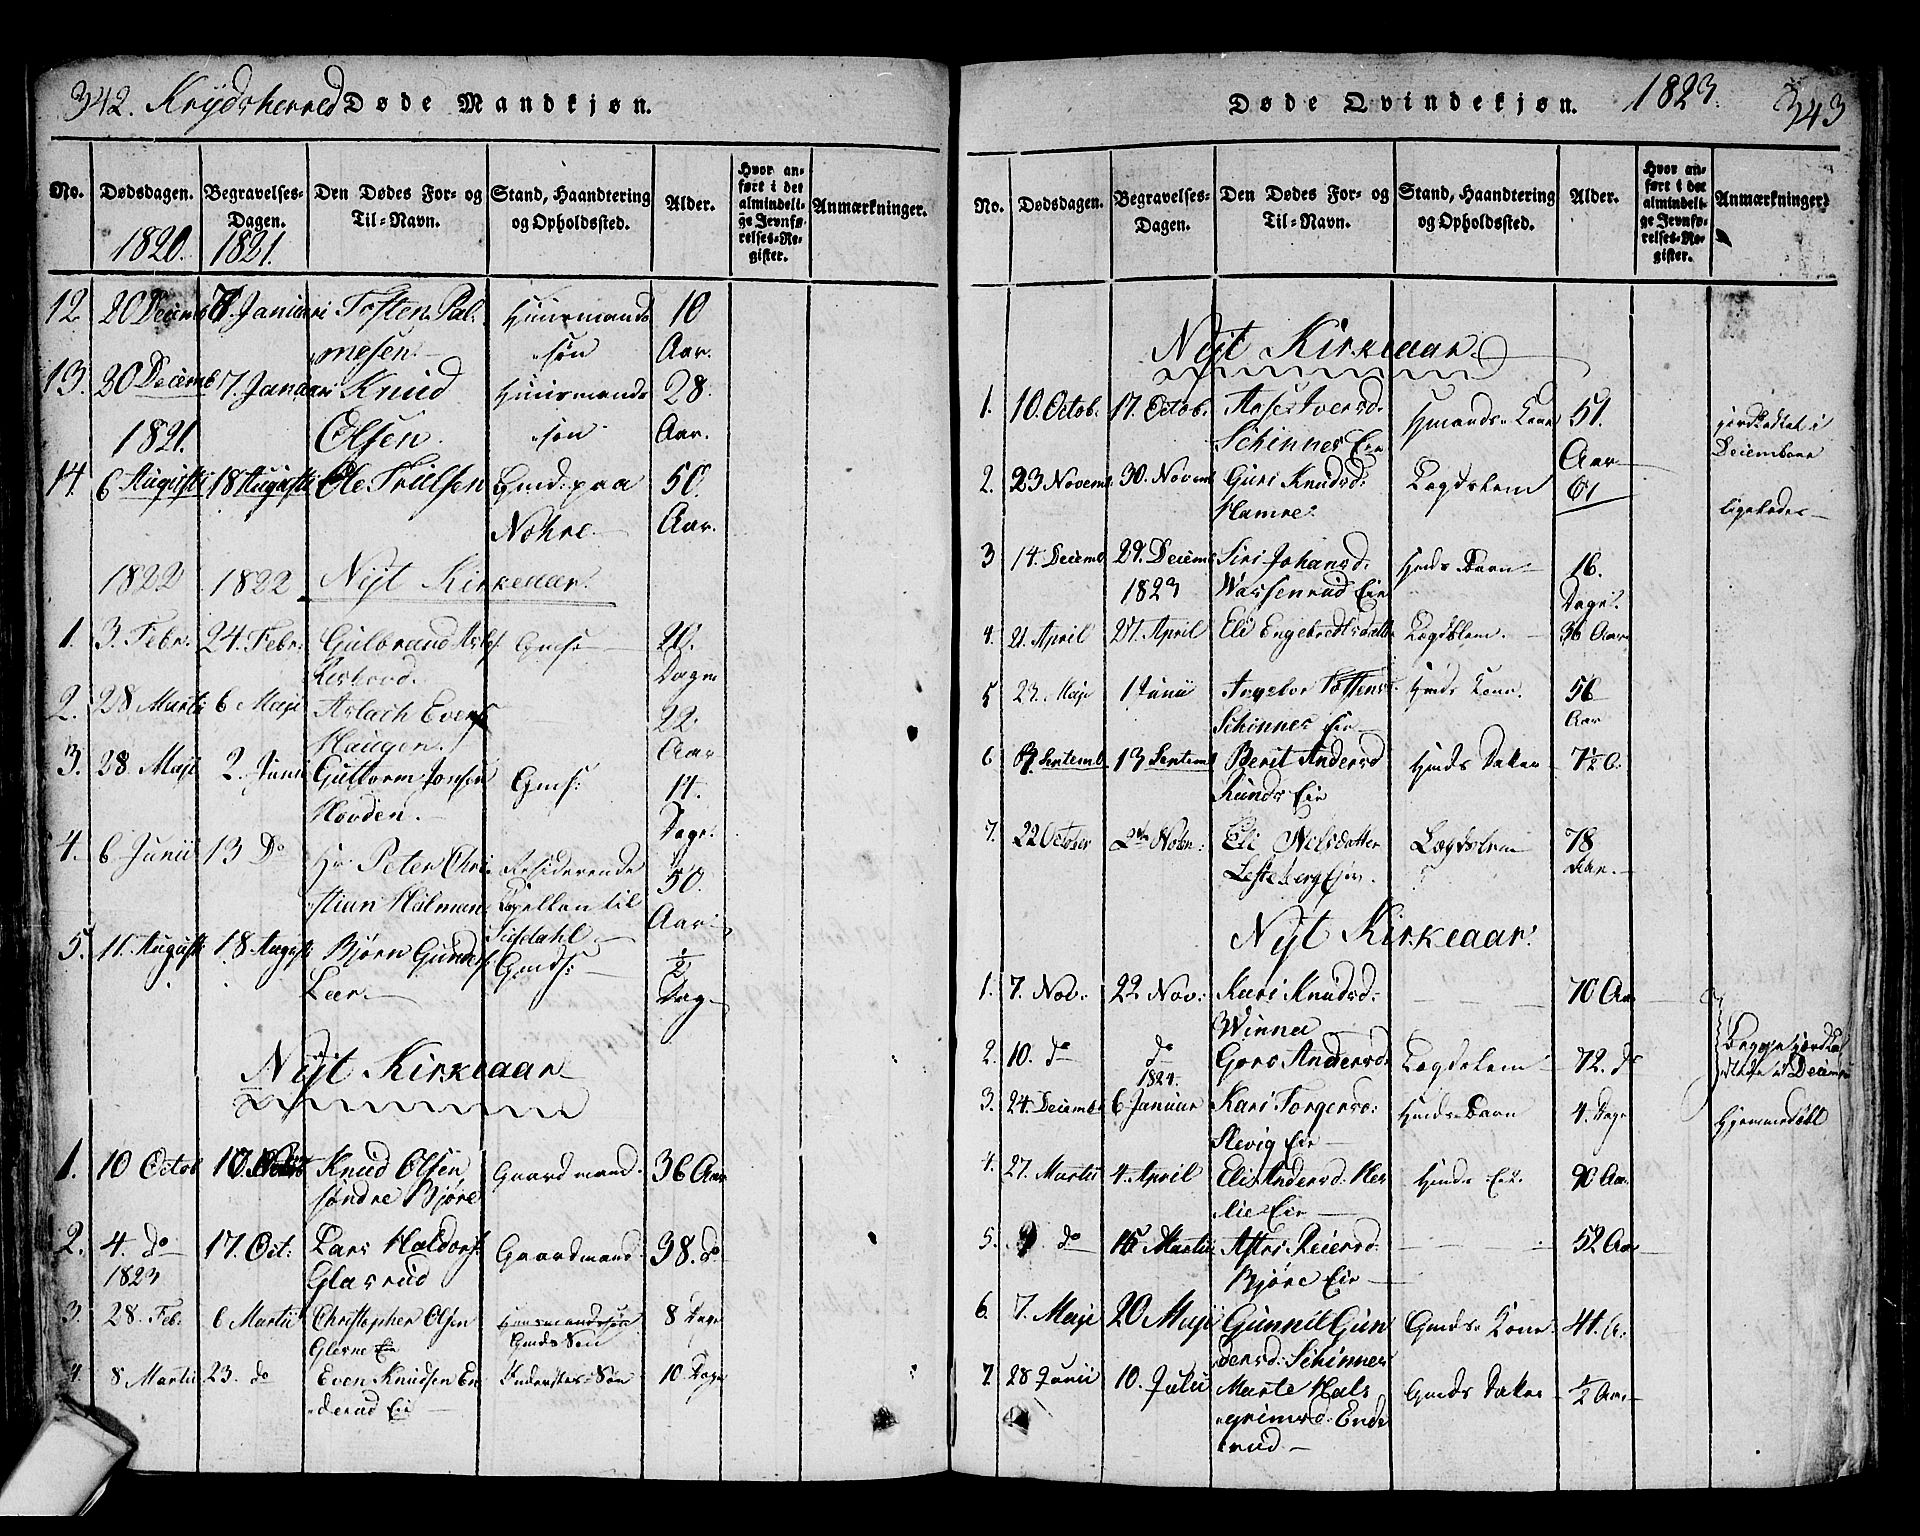 342. Krydsherred Døde Mandkjøn.
No. Dødsdagen. Begravelses-Dagen. Den Dødes For- og Til-Navn. Stand, Haandtering og Opholdssted. Alder. Hvor anført i det almindelige Jevnførelses-Register. Anmærkninger.
1820. 1821.
12. 20 Decemb 7. Januari Tosten Pal- Huusmands 10
mesen. søn Aar.
13. 30 Decemb 7. Januari Knud Huusmands 28.
1821. Olsen. søn Aar.
14. 6 Augusti 18 Augusti Ole Truelsen Gmd. paa 50.
Nohre. Aar.
1822 1822 Nyt Kirkeaar.
1. 3. Febr. 24. Febr. Gulbrand Gms. 20.
Dage
2. 28 Marti 6 Maji Aslach Evens 22
Haugen. Aar
3. 28. Maji 2. Junii Guttorm Gms: 14.
Hovden. Dage.
4. 6 Junii 13 Do Hr Peter Chri- Residerende 50.
stian Holman Capellan til Aar
Sigdahl
5. 11. Augusti 18. Augusti Bjørn Gunders Gmds: 1/2
Lær. Dag
Nyt Kirkeaar
1. 10 Octob Knud Olsen Gaardmand. 36 Aar
søndre Bjøre
2. 4. do 17. Oct: Lars Haldors Gaardmand 38. do
1823 Glasrud
3. 28. Feb. 6 Martii Christopher Olsen Huusmandssøn 8 Dage
Glesne Eie Gmds Søn
4. 8 Martii 23. do Even Knudsen En- Søn 10 Dage
derud Eie
Døde Qvindekjøn. 1823. 343
No. Dødsdagen. Begravelses-Dagen. Den Dødes For- og Til-Navn. Stand, Haandtering og Opholdssted. Alder. Hvor anført i det almindelige Jevnførelses-Register. Anmærkninger.
Nyt Kirkeaar.
1. 10. Octob. 17. Octob. Iversd. Hmands Kone 51. jordkastet i
Schinnes Eie Aar Decembere
2. 23 Novemb. 30. Novem Guri Knudsd: Lægdslem 61
Hamre. ligeledes
3 14. Decemb 29. Decemb Siri Johansd: Hmds Barn 16.
1823 Wassenrud Eie Dage.
4. 21. April 27. April Eli Engebretsdatter Lægdslem. 36 Aar
5 23. Maji 1 Junii Ingebor Tostensd. Hmds Kone. 56
Schinnes Eie Aar
6 Septemb 13 Septemb Berit Andersd Hmds Datter
Eie
7. 22 October 2den Novbr: Eli Nelsdatter Lægdslem 78
Lesteberg Ejer. Aar.
Nyt Kirkeaar.
1. 7. Nov. 22 Nov: Kari Knudsd: 70 Aar
Winnes
2. 10. do do Goro Andersd. Lægdslem 72. do Begge jordka-
1824. i Decemb
3. 24. Decembr 6 Januar Kari Torgersd: Hmds Barn 4. Dage Hjemmedøbt
Slevig Eie
4. 27. Martii 4. April Eli Andersd. Her- Hmds Eie. 90 Aar.
lie Eie
5. do 15 Martii Astri Reiersd. 52 Aar
Bjøre Eie
6. 7. Maji 20 Maji Gunnil Gun Gmds Kone 41. A.
dersd: Schinnes
7. 28 Junii 10. Julii Marte Hals Gmds Datter 1/2 Aar
grimsd. Ende
rud